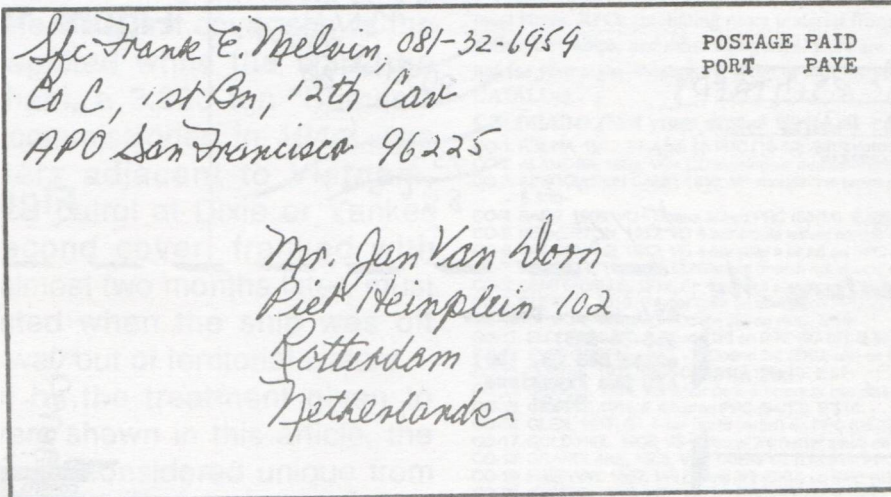 Sfc Frank E. Melvin, 081-32-6959
Co C, 1st Bn, 12th Cav
APO San Francisco 96225
POSTAGE PAID
PORT PAYE
Mr. Jan Van Dorn
Piet Heinplein 102
Rotterdam
Netherlands